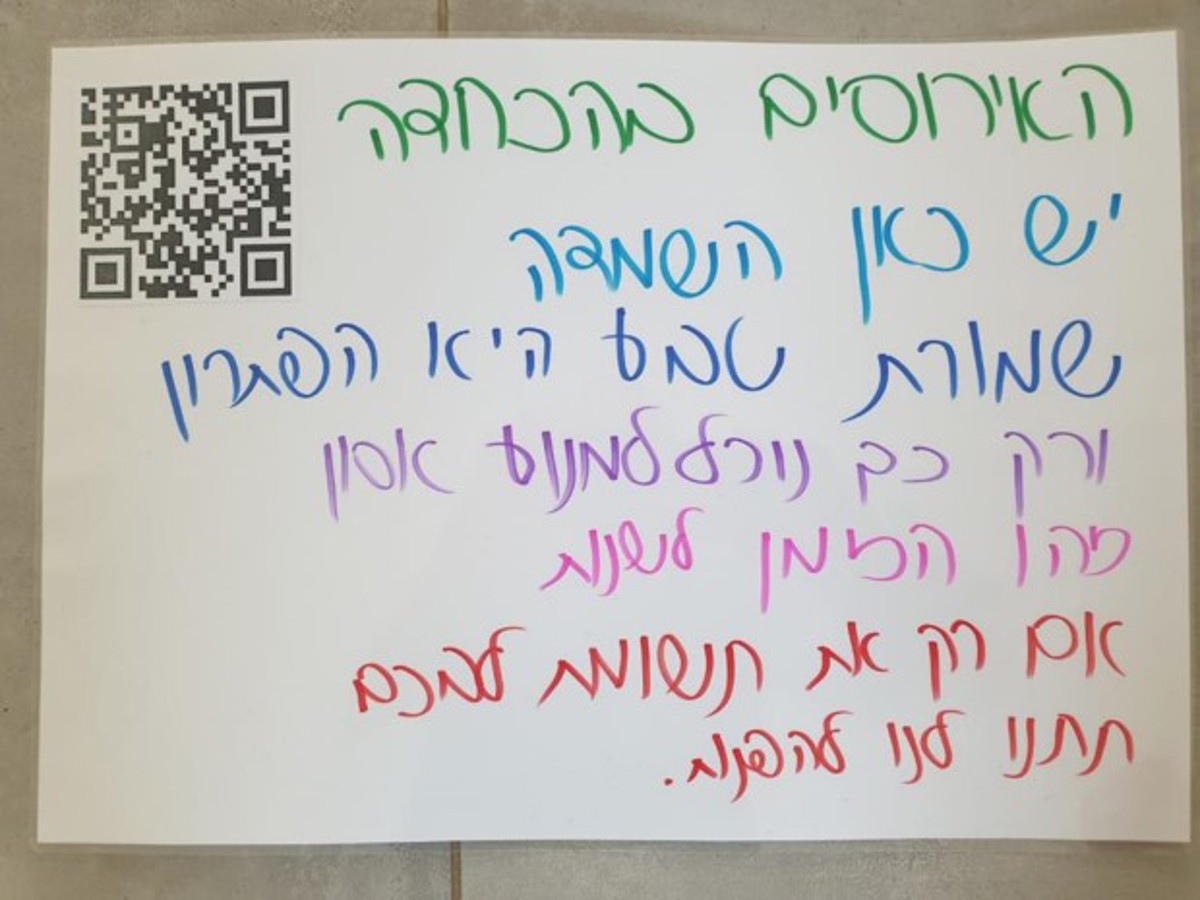 האירוסים בהכחדה
יש כאן השמדה
שמורת טבע היא הפתרון
ורק כך נוכל למנוע אסון
זהו הזמן לשנות
אם רק את תשומת לבכם
תתנו לנו להפנות.